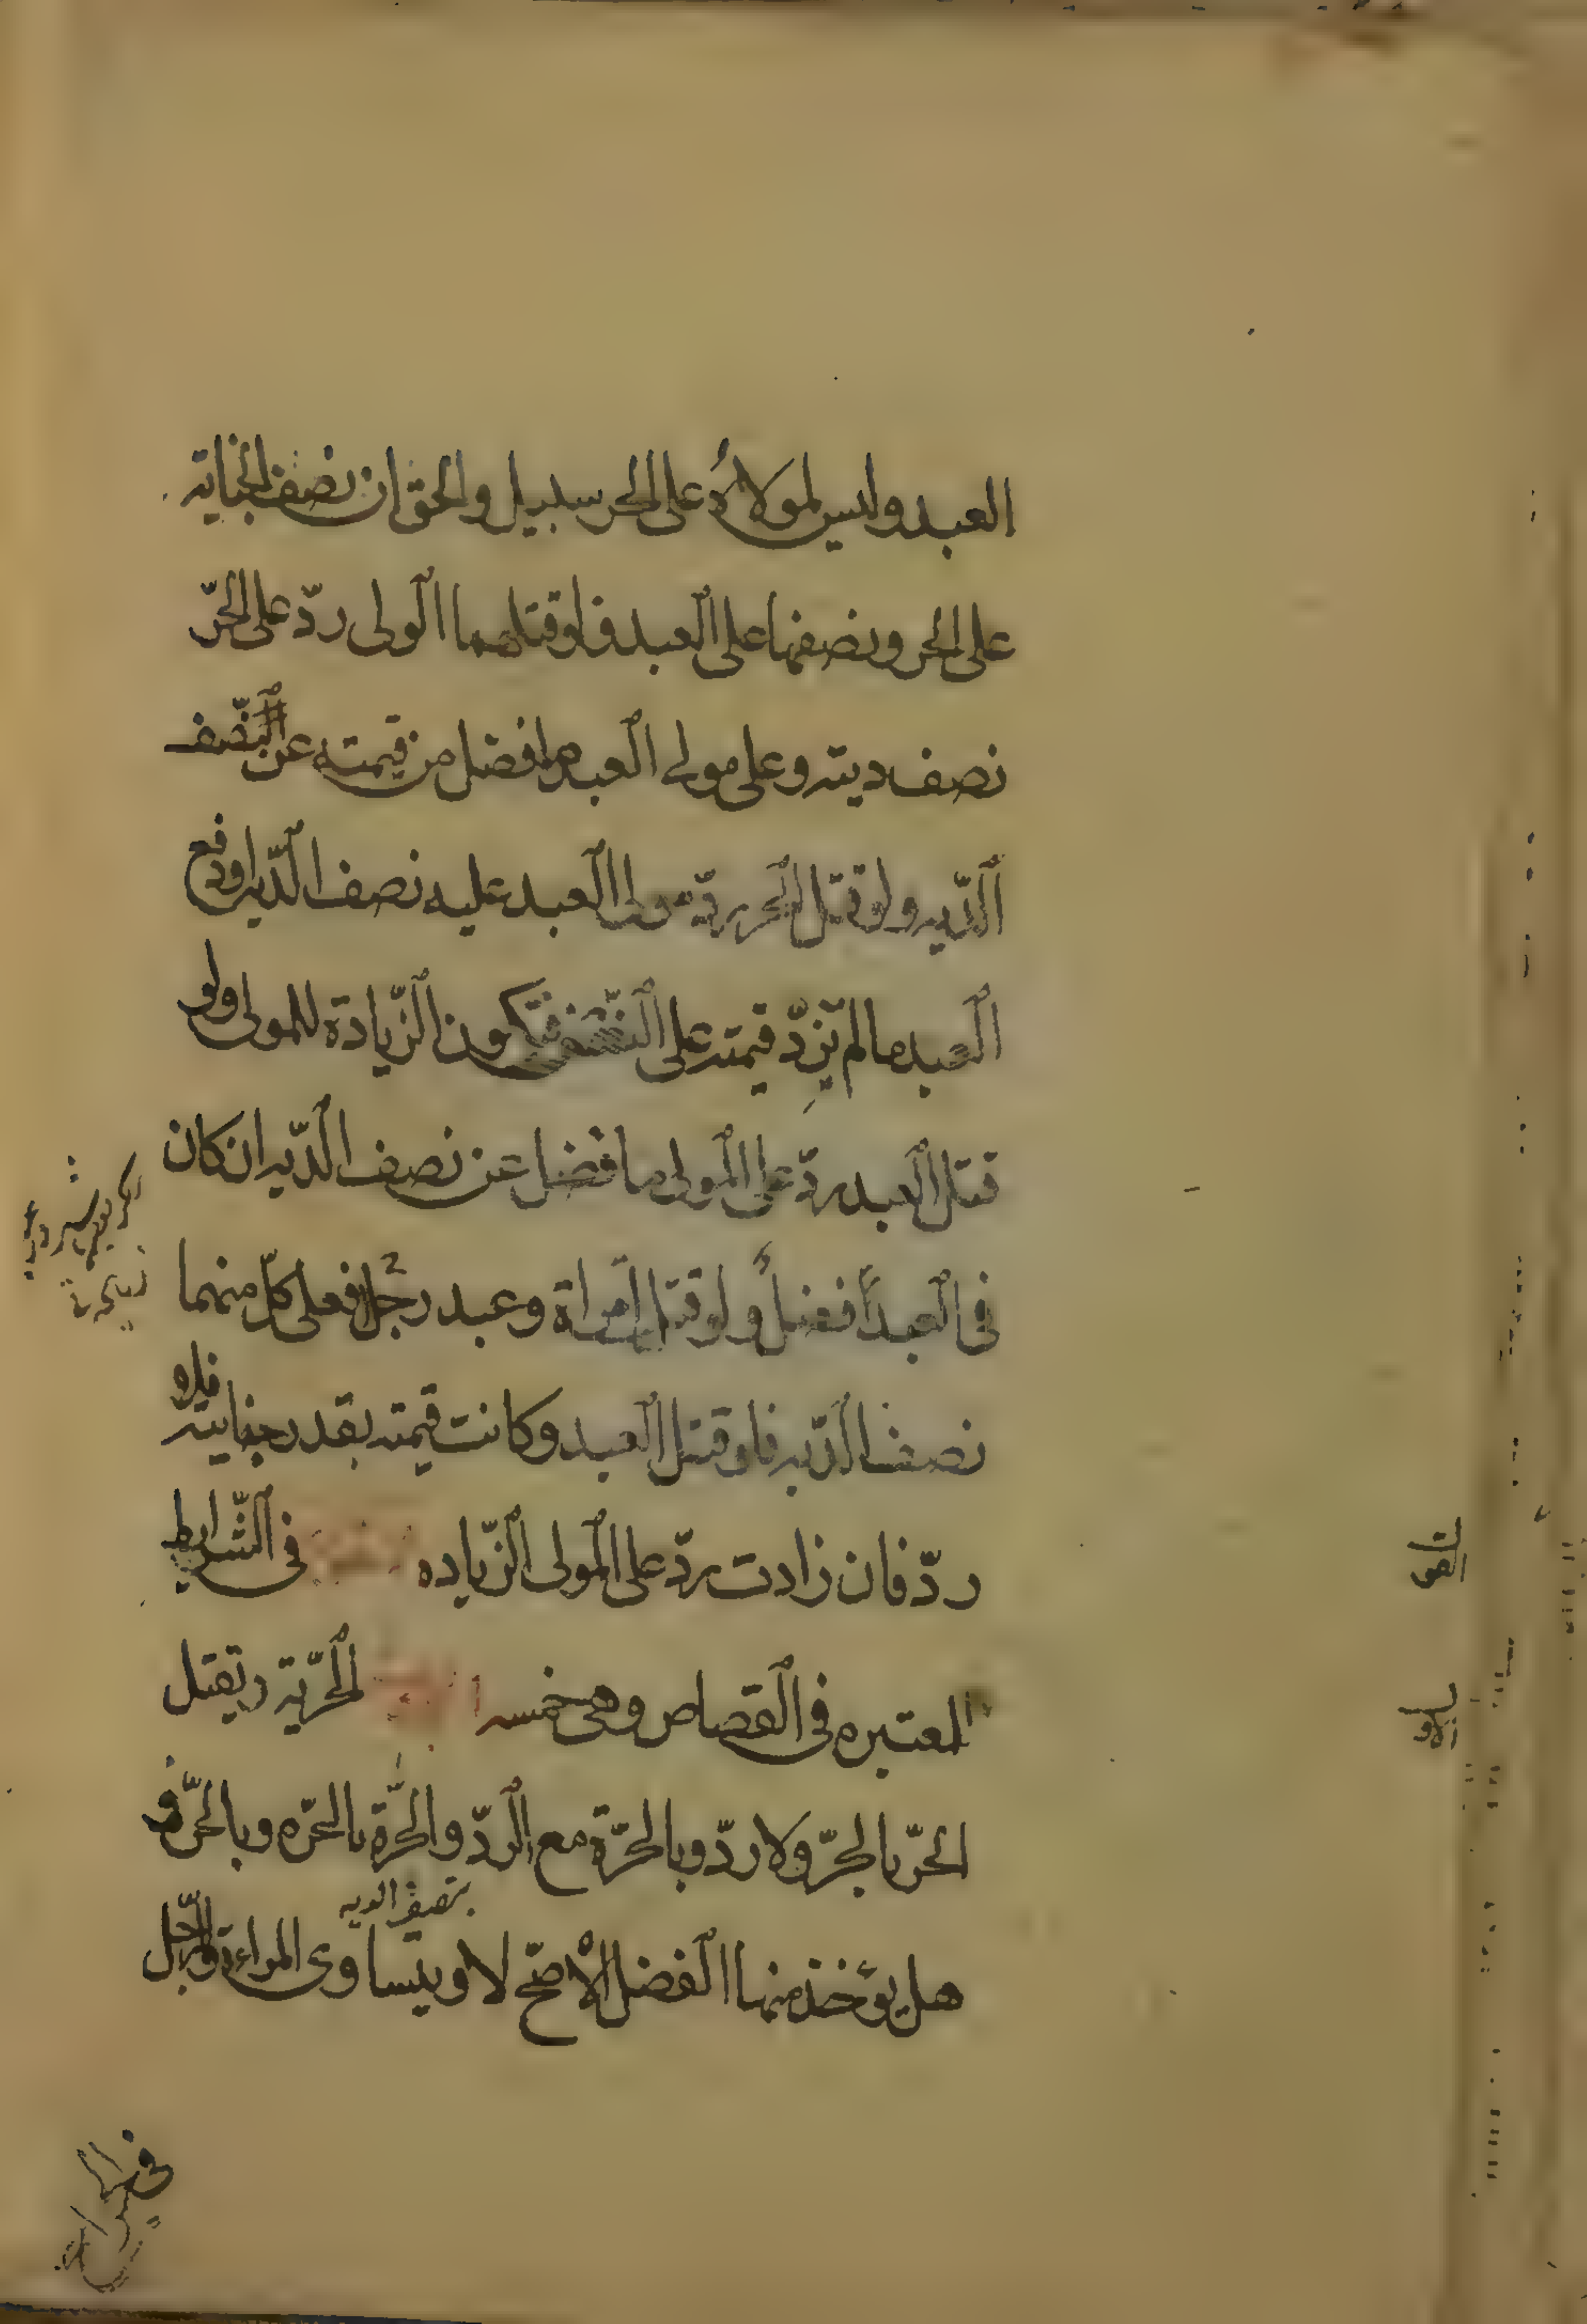 العبد وليس لمولاه على الحر سبيل والحق ان نصف الجناية
على الحر ونصفها على العبد فلو قتلهما الولى ردّ على الحرّ
نصف ديته وعلى مولى العبد ما فضل من قيمته عن النّصف
الدّيه ولو قتل الحر ردّ مولى العبد عليه نصف الدّيه او دفع
العبد ما لم تزد قيمته على النّصف فتكون الزّيادة للمولى ولو
قتل العبد ردّ على المولى ما فضل عن نصف الدّيه ان كان
فى العبد فضل ولو قتل امراة وعبد رجلا فعلى كلّ منهما
نصف الدّيه فلو قتل العبد وكانت قيمته بقدر جنايته فلا
ردّ فان زادت ردّ على المولى الزّياده فى الشّرايط
المعتبره فى القصاص وهى خمسه الحرّية ويقتل
الحرّ بالحرّ ولا ردّ وبالحرّة مع الردّ والحرّة بالحرّه وبالحرّ و
هل يؤخذ منها الفضل الاصحّ لا ويتساوى المراءة والرّجل
بنصف الديه